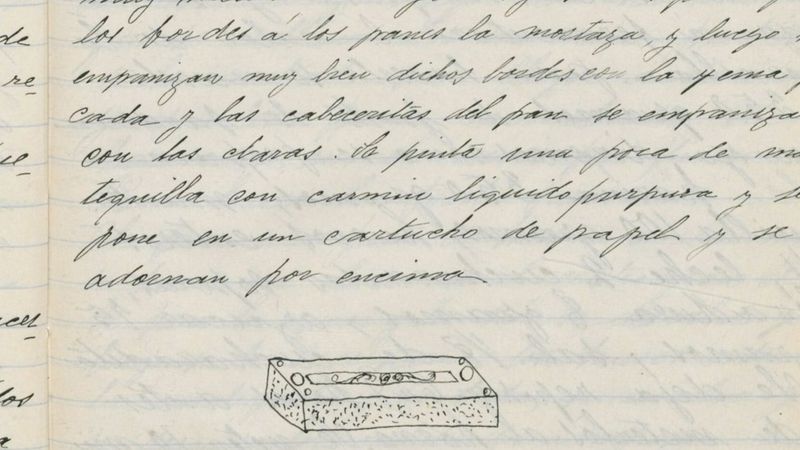 los bordes á los panes la mostaza, y luego
de
empanizan muy bien dichos bordes con la yema
re-
cada y las cabeceritas del pan se empaniza
con las claras. Se pinta una poca de ma
tequilla con carmin liquido purpura y se
pone en un cartucho de papel y se
adornan por encima
los
a